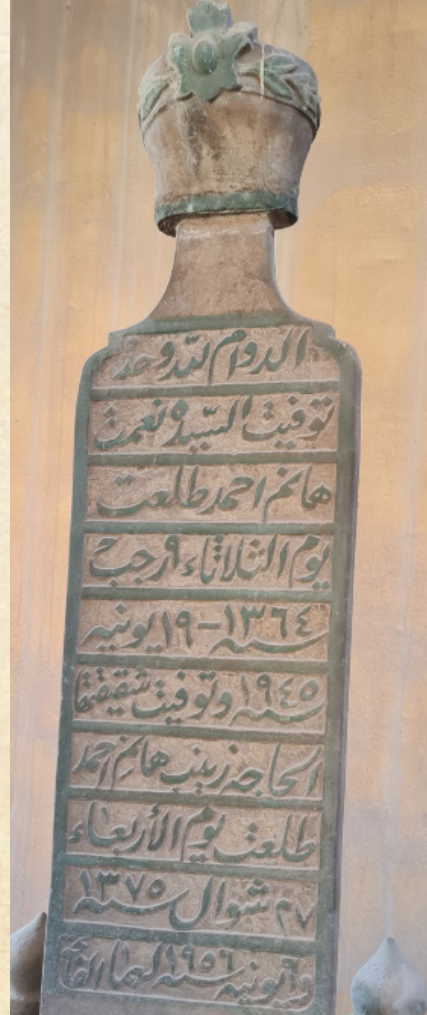 الدوام لله وحده
توفيت السيدة نعمت
هانم احمد طلعت
يوم الثلاثاء ٩ رجب
سنة ١٣٦٤ – ١٩ يونيه
سنة ١٩٤٥ وتوفيت شقيقتها
الحاجه زينب هانم احمد
طلعت يوم الأربعاء
٢٧ شوال سنة ١٣٧٥
يونيه سنة ١٩٥٦ لهما الفاتحة